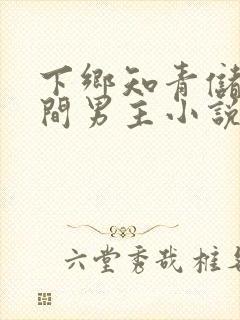 下鄉知青儲
間男主小說
六堂秀哉桩